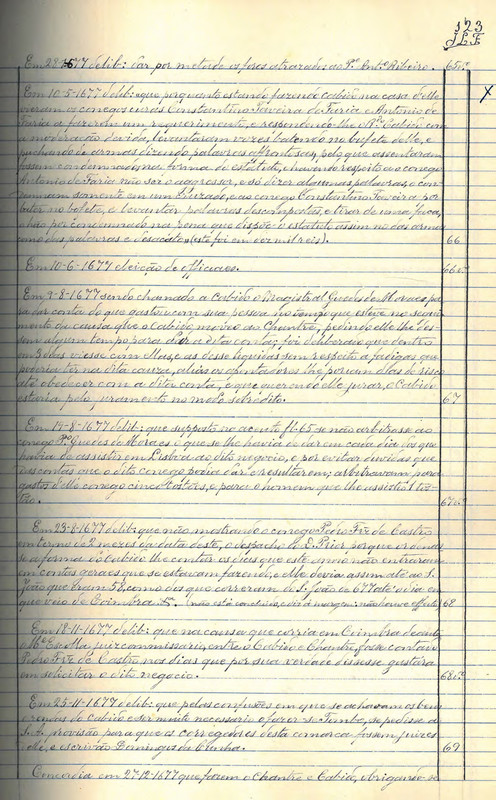 123
Em 28-1-677 delib: dar por metade os foros atrazados ao P.e Ant.o Ribeiro. 65v.o
Em 10-5-1677 delib: que porquanto estando fazendo cabido na casa delle
vieram os conegos curas Constantino Teixeira de Faria e Antonio de
Faria a fazerem um requerimento, e respondendo-lhe o R.do Cabido com
a moderação devida, levantaram vozes batendo no bufete delle, e
puchando de armas dizendo palavras afrontosas, pelo que assentaram
fossem condemnados na forma do estatuto, e havendo respeito ao conego
Antonio de Faria não ser o aggressor, e só dizer algumas palavras, o con-
demnam somente em um cruzado, e ao conego Constantino Teixeira por
bater no bofete, e levantar palavras descompostas, e tirar de uma faca,
o hão por condemnado na pena que dispõe o estatuto assim no das armas
como das palavras e desacato" (esta foi em cer mil reis). 66
Em 10-6-1677 eleição de officiaes. 66v.o
Em 9-8-1677 sendo chamado a Cabido o Magistral Guedes de Moraes pa-
ra dar conta do que gastou com sua pessoa no tempo que esteve no segui-
mento da causa que o Cabido moveo ao Chantre, pedindo elle lhe des-
sem algum tempo para dar a dita conta, foi deliberado que dentro
em 3 dias viesse com ellas, e as desse liquidas sem respeito a fadigas que
poderia ter na dita cauza, aliás os apontadores lhe poriam dias de risco
até obedecer com a dita conta, e que querendo elle jurar, o Cabido
estaria pelo juramento no modo sobredito. 67
Em 14-8-1677 delib: que supposto no acento fl. 65 se não arbitrasse ao
conego P.o Guedes de Moraes o que se lhe havia de dar em cada dia dos que
havia de assistir em Lisboa ao dito negocio, e por evitar duvidas que
das contas que o dito conego podia dar o resultarem; arbitravam para
gastos delle conego cinco tostões, e para o homem que lhe assistio 1 tos-
tão. 67v.o
Em 23-8-1677 delib: que não mostrando o conego Pedro Frz. de Castro
em termo de 2 mezes da data deste, o despacho do D. Prior porque ordenas-
se a forma do Cabido lhe contar os dias que este anno não entraram
em contos geraes que se estavam fazendo, e elle devia assim até ao S.
João que eram 58, como os que correram de S. João de 677 até ao dia em
que veio de Coimbra (não está concluido, e diz á margem: não houve effeito) 68
Em 18-11-1677 delib: que na causa que corria em Coimbra deante
o M.e Escolla, juiz commissario, entre o Cabido e Chantre, fosse contado
Pedro Frz. de Castro nos dias que por sua verdade dissesse gastára
em solicitar o dito negocio. 68v.o
Em 25-11-1677 delib: que pelas confusões em que se achavam os bens
e rendas do Cabido e ser muito necessario o fazer-se Tombo, se pedisse a
S. A. provisão para que os corregedores desta comarca fossem juizes
delle, e escrivão Domingos da Cunha. 69
Concordia em 27-12-1677 que fazem o Chantre e Cabido, obrigando-se